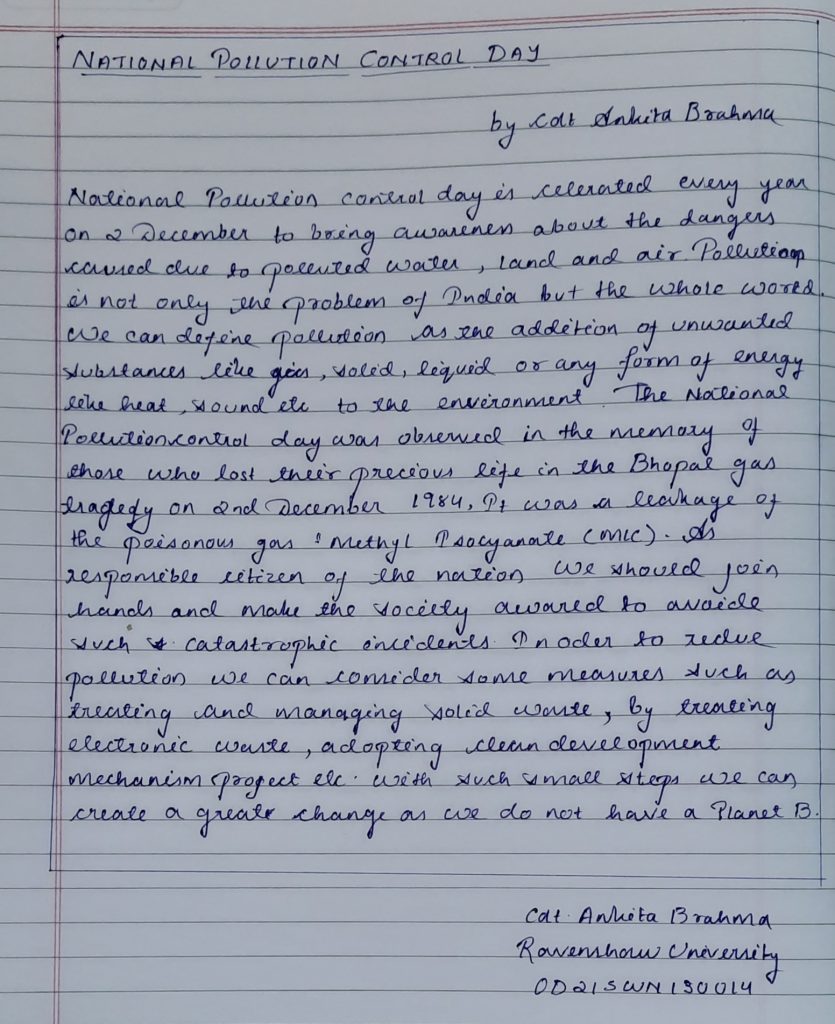 NATIONAL POLLUTION CONTROL DAY
by Cdt Ankita Brahma
National Pollution control day is celerated every year
on 2 December to bring awareness about the dangers
caused due to polluted water, land and air. Pollution
is not only the problem of India but the whole world.
We can define pollution as the addition of unwanted
substances like gas, solid, liquid or any form of energy
like heat, sound etc to the environment. The National
Pollution control day was observed in the memory of
those who lost their precious life in the Bhopal gas
tragedy on 2nd December 1984. It was a leakage of
the poisonous gas : Methyl Isocyanate (MIC). As
responsible citizen of the nation we should join
hands and make the society awared to avoide
such catastrophic incidents. In oder to redue
pollution we can consider some measures such as
treating and managing solid waste, by treating
electronic waste, adopting clean development
mechanism project etc. with such small steps we can
create a greate change as we do not have a Planet B.
Cdt. Ankita Brahma
Ravenshaw University
OD21SWN130014